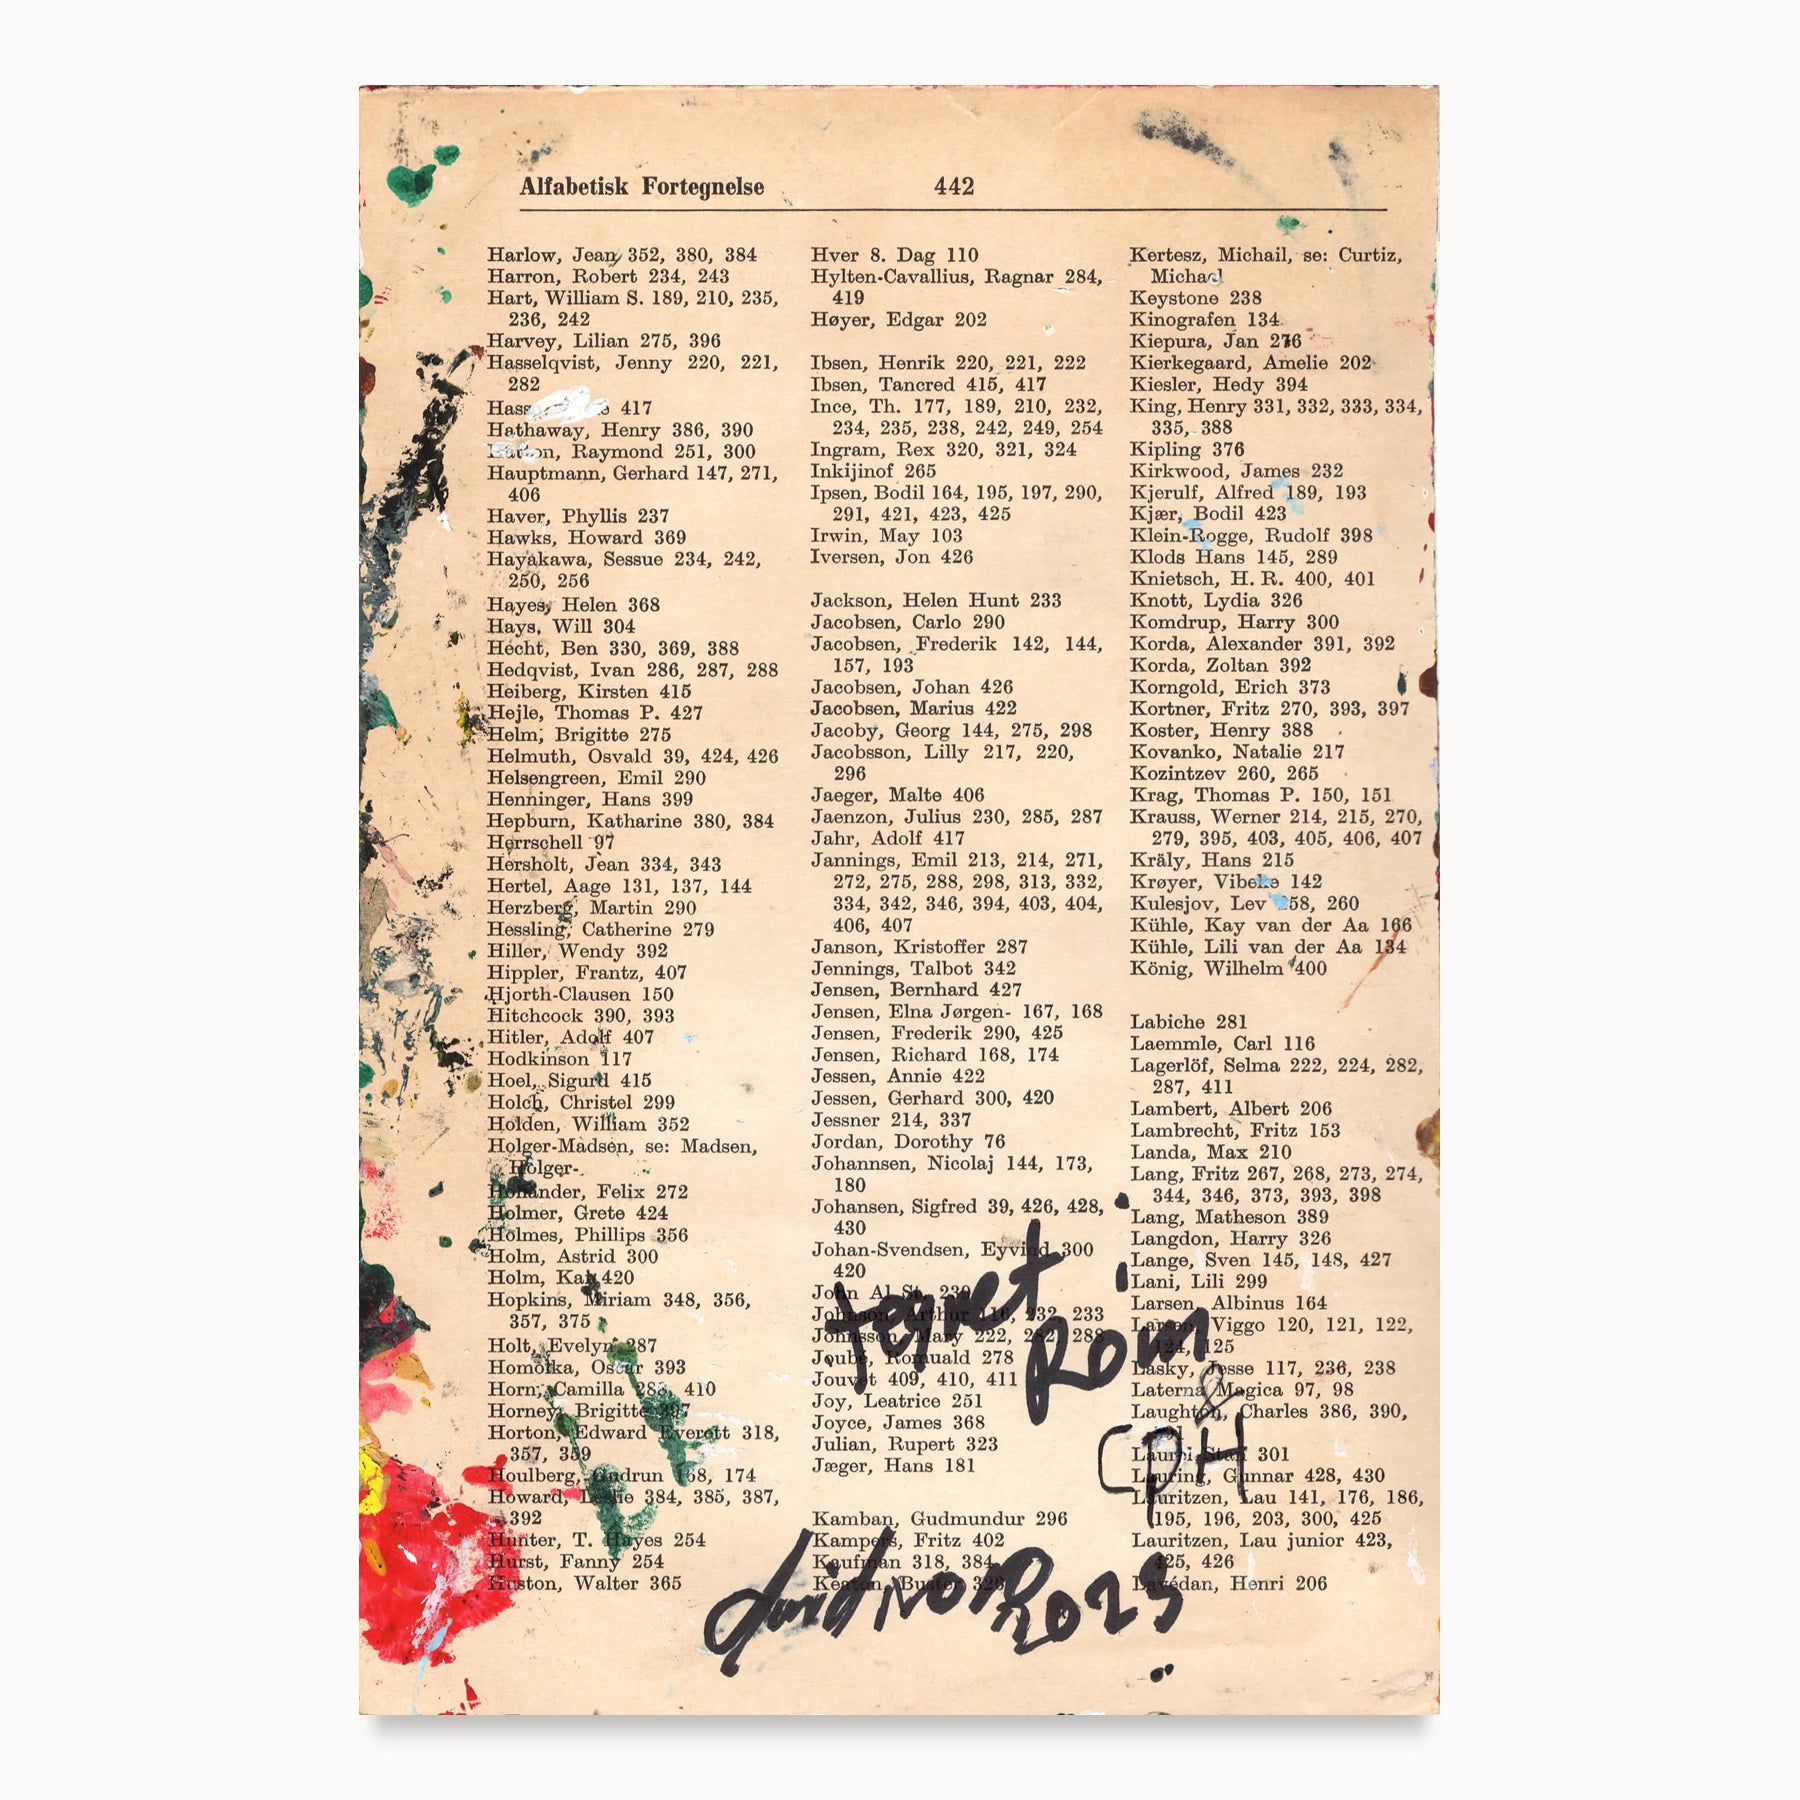 Alfabetisk Fortegnelse 442
Harlow, Jean 352, 380, 384
Harron, Robert 234, 243
Hart, William S. 189, 210, 235,
236, 242
Harvey, Lilian 275, 396
Hasselqvist, Jenny 220, 221,
282
417
Hathaway, Henry 386, 390
Raymond 251, 300
Hauptmann, Gerhard 147, 271,
406
Haver, Phyllis 237
Hawks, Howard 369
Hayakawa, Sessue 234, 242,
250, 256
Hayes, Helen 368
Hays, Will 304
Hecht, Ben 330, 369, 388
Hedqvist, Ivan 286, 287, 288
Heiberg, Kirsten 415
Hejle, Thomas P. 427
Helm, Brigitte 275
Helmuth, Osvald 39, 424, 426
Helsengreen, Emil 290
Henninger, Hans 399
Hepburn, Katharine 380, 384
Herrschell 97
Hersholt, Jean 334, 343
Hertel, Aage 131, 137, 144
Herzberg, Martin 290
Hessling, Catherine 279
Hiller, Wendy 392
Hippler, Frantz, 407
Hjorth-Clausen 150
Hitchcock 390, 393
Hitler, Adolf 407
Hodkinson 117
Hoel, Sigurd 415
Holch, Christel 299
Holden, William 352
Holger-Madsen, se: Madsen,
Holger-
Hollander, Felix 272
Holmer, Grete 424
Holmes, Phillips 356
Holm, Astrid 300
Holm, Kai 420
Hopkins, Miriam 348, 356,
357, 375
Holt, Evelyn 287
Homolka, Oscar 393
Horn, Camilla 288, 410
Horney, Brigitte 397
Horton, Edward Everett 318,
357, 359
Houlberg, Gudrun 168, 174
Howard, Leslie 384, 385, 387,
392
Hunter, T. Hayes 254
Hurst, Fanny 254
Huston, Walter 365
Hver 8. Dag 110
Hylten-Cavallius, Ragnar 284,
419
Høyer, Edgar 202
Ibsen, Henrik 220, 221, 222
Ibsen, Tancred 415, 417
Ince, Th. 177, 189, 210, 232,
234, 235, 238, 242, 249, 254
Ingram, Rex 320, 321, 324
Inkijinof 265
Ipsen, Bodil 164, 195, 197, 290,
291, 421, 423, 425
Irwin, May 103
Iversen, Jon 426
Jackson, Helen Hunt 233
Jacobsen, Carlo 290
Jacobsen, Frederik 142, 144,
157, 193
Jacobsen, Johan 426
Jacobsen, Marius 422
Jacoby, Georg 144, 275, 298
Jacobsson, Lilly 217, 220,
296
Jaeger, Malte 406
Jaenzon, Julius 230, 285, 287
Jahr, Adolf 417
Jannings, Emil 213, 214, 271,
272, 275, 288, 298, 313, 332,
334, 342, 346, 394, 403, 404,
406, 407
Janson, Kristoffer 287
Jennings, Talbot 342
Jensen, Bernhard 427
Jensen, Elna Jørgen- 167, 168
Jensen, Frederik 290, 425
Jensen, Richard 168, 174
Jessen, Annie 422
Jessen, Gerhard 300, 420
Jessner 214, 337
Jordan, Dorothy 76
Johannsen, Nicolaj 144, 173,
180
Johansen, Sigfred 39, 426, 428,
430
Johan-Svendsen, Eyvind 300
420
John Al St. 239
Johnson, Arthur 116, 232, 233
Johnsson, Mary 222, 282, 288
Joubé, Romuald 278
Jouvet 409, 410, 411
Joy, Leatrice 251
Joyce, James 368
Julian, Rupert 323
Jæger, Hans 181
Kamban, Gudmundur 296
Kampers, Fritz 402
Kaufman 318, 384
Keaton, Buster 326
Kertesz, Michail, se: Curtiz,
Michael
Keystone 238
Kinografen 134
Kiepura, Jan 276
Kierkegaard, Amelie 202
Kiesler, Hedy 394
King, Henry 331, 332, 333, 334,
335, 388
Kipling 376
Kirkwood, James 232
Kjerulf, Alfred 189, 193
Kjær, Bodil 423
Klein-Rogge, Rudolf 398
Klods Hans 145, 289
Knietsch, H. R. 400, 401
Knott, Lydia 326
Komdrup, Harry 300
Korda, Alexander 391, 392
Korda, Zoltan 392
Korngold, Erich 373
Kortner, Fritz 270, 393, 397
Koster, Henry 388
Kovanko, Natalie 217
Kozintzev 260, 265
Krag, Thomas P. 150, 151
Krauss, Werner 214, 215, 270,
279, 395, 403, 405, 406, 407
Kräly, Hans 215
Krøyer, Vibeke 142
Kulesjov, Lev 258, 260
Kühle, Kay van der Aa 166
Kühle, Lili van der Aa 134
König, Wilhelm 400
Labiche 281
Laemmle, Carl 116
Lagerlöf, Selma 222, 224, 282,
287, 411
Lambert, Albert 206
Lambrecht, Fritz 153
Landa, Max 210
Lang, Fritz 267, 268, 273, 274,
344, 346, 373, 393, 398
Lang, Matheson 389
Langdon, Harry 326
Lange, Sven 145, 148, 427
Lani, Lili 299
Larsen, Albinus 164
Larsen, Viggo 120, 121, 122,
124, 125
Lasky, Jesse 117, 236, 238
Laterna Magica 97, 98
Laughton, Charles 386, 390,
Stan 301
Lauring, Gunnar 428, 430
Lauritzen, Lau 141, 176, 186,
195, 196, 203, 300, 425
Lauritzen, Lau junior 423,
425, 426
Lavédan, Henri 206
tegnet i
Rom
&
CPH
david noir 2023